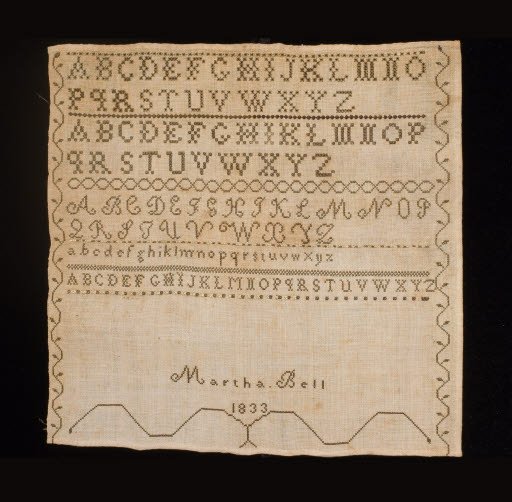 ABCDEFGHIJKLMNO
PqRSTUVWXYZ
ABCDEFGHIKLMNOP
qRSTUVWXYZ
ABCDEFGHIKLMNOP
QRSTUVWXYZ
abcdefghiklmnopqrstuvwxyz
ABCDEFGHIJKLMNOPqRSTUVWXYZ
Martha. Bell
1833